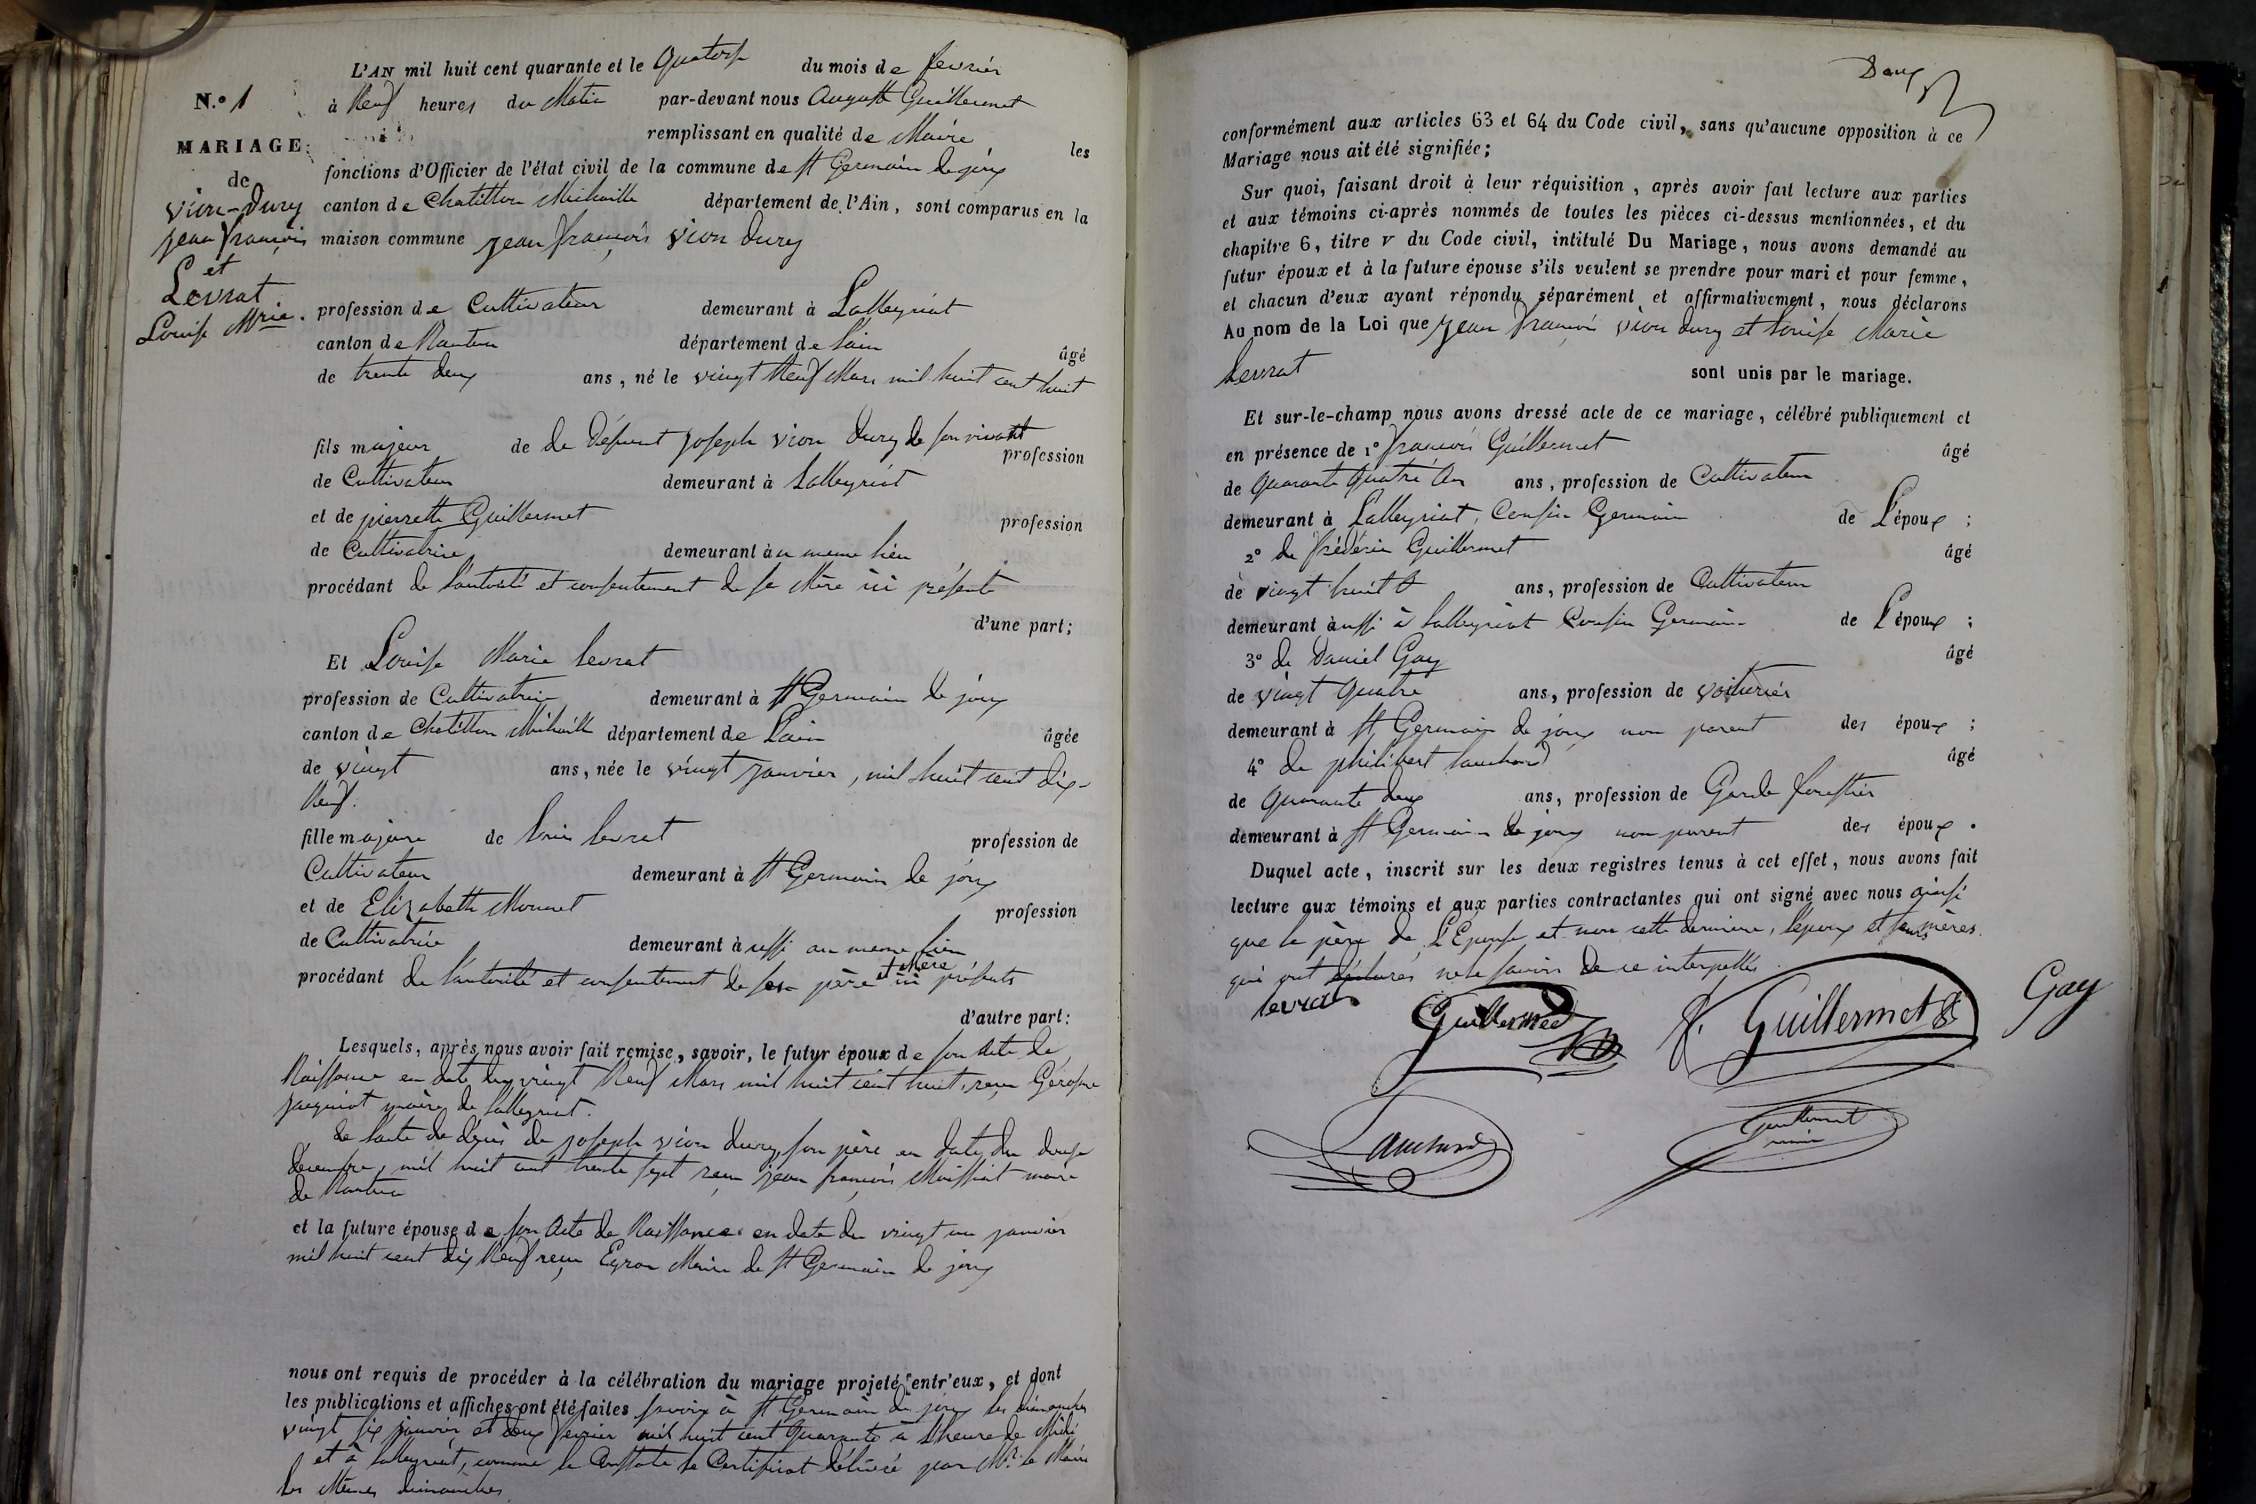 L'AN mil huit cent quarante et le Quatorse du mois de fevrier
N.º 1
à Neuf heures du Matin par-devant nous August Guillermet
remplissant en qualité de Maire les
MARIAGE
fonctions d'Officier de l'état civil de la commune de St Germain de joux
de
Vion-Dury
canton de Chatillon Michaille département de l'Ain, sont comparus en la
jean françois
maison commune jean françois Vion Dury
et
Levrat
Louise Mrie.
profession de Cultivateur demeurant à Lalleyriat
canton de Nantua département de L'ain âgé
de trente deux ans, né le vingt Neuf Mars mil huit cent huit
fils majeur de de Défunt joseph vion Dury de son vivant profession
de Cultivateur demeurant à Lalleyriat
et de pierrette Guillermet profession
de Cultivatrice demeurant à u meme lieu
procédant de L'autorité et consentement de sa Mère ici présente
d'une part;
Et Louise Marie Levrat
profession de Cultivatrice demeurant à St Germain de joux
canton de Chatillon Michaille département de L'ain âgée
de vingt ans, née le vingt janvier, mil huit cent dix-
Neuf.
fille majeure de Louis Levrat profession de
Cultivateur demeurant à St Germain de joux
et de Elizabeth Mounet profession
de Cultivatrice demeurant à ussi au meme lieu
procédant de L'autorité et consentement de ses père et Mère ici présents
d'autre part:
Lesquels, après nous avoir fait remise, savoir, le futur époux de son Acte de
Naissance en date du vingt Neuf Mars mil huit cent huit, reçu
jacquinot maire de Lalleyriat.
de L'acte de décès de joseph vion Dury, son père en date du douze
décembre, mil huit cent trente sept reçu jean françois Maissiat maire
de Nantua
et la future épouse de son Acte de Naissance en date du vingt un janvier
mil huit cent dix Neuf reçu Egron Maire de St Germain de joux
nous ont requis de procéder à la célébration du mariage projeté entr'eux, et dont
les publications et affiches ont été faites savoir à St Germain de joux les dimanches
vingt six janvier et deux fevrier mil huit cent Quarante à L'heure de Midi
et à Lalleyriat, comme le Constate le Certificat délivré par Mr le Maire
les Mêmes dimanches
Deux
conformément aux articles 63 et 64 du Code civil, sans qu'aucune opposition à ce
Mariage nous ait été signifiée;
Sur quoi, faisant droit à leur réquisition, après avoir fait lecture aux parties
et aux témoins ci-après nommés de toutes les pièces ci-dessus mentionnées, et du
chapitre 6, titre v du Code civil, intitulé Du Mariage, nous avons demandé au
futur époux et à la future épouse s'ils veulent se prendre pour mari et pour femme,
et chacun d'eux ayant répondu séparément et affirmativement, nous déclarons
Au nom de la Loi que jean françois vion Dury et Louise Marie
Levrat sont unis par le mariage.
Et sur-le-champ nous avons dressé acte de ce mariage, célébré publiquement et
en présence de 1º françois Guillermet âgé
de Quarante Quatre An ans, profession de Cultivateur
demeurant à Lalleyriat, Cousin Germain de L'époux ;
2º de frédéric Guillermet âgé
de vingt huit ans, profession de Cultivateur
demeurant à ussi à Lalleyriat Cousin Germain de L'époux ;
3º de Daniel Gay âgé
de vingt Quatre ans, profession de voiturier
demeurant à St Germain de joux non parent des époux ;
4º de philibert Lauchard âgé
de Quarante deux ans, profession de Garde forestier
demeurant à St Germain de joux non parent des époux .
Duquel acte, inscrit sur les deux registres tenus à cet effet, nous avons fait
lecture aux témoins et aux parties contractantes qui ont signé avec nous ainsi
que le père de L'Epouse et non cette derniere, l'époux et leurs mères
qui ont déclarés ne le savoir de ce interpellés.
levrat Guillermet f. Guillermet Gay
Lauchard Guillermet
maire